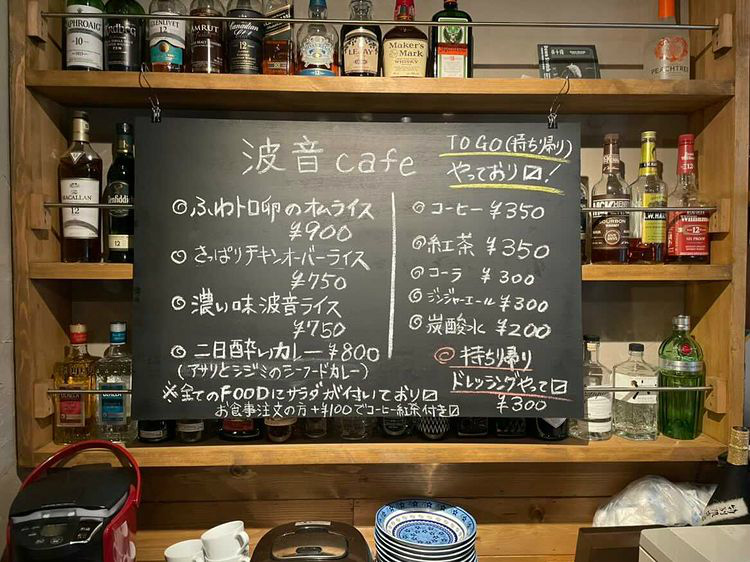 LAPHROAIG
10
GLENLIVET
12
AMRUT
Canadian
Maker's
Mark
WHISKY
PEACHTREE
波音 cafe
TO GO(持ち帰り)
やっており〼!
◎ふわトロ卵のオムライス
¥900
◎さっぱりチキンオーバーライス
¥750
◎濃い味波音ライス
¥750
◎二日酔いカレー¥800
(アサリとシジミのシーフードカレー)
※全てのFOODにサラダが付いており〼
お食事注文の方+¥100でコーヒー紅茶付き〼
◎コーヒー ¥350
◎紅茶 ¥350
◎コーラ ¥300
◎ジンジャーエール ¥300
◎炭酸水 ¥200
◎持ち帰り
ドレッシングやって〼
¥300
MACALLAN
12
12
12